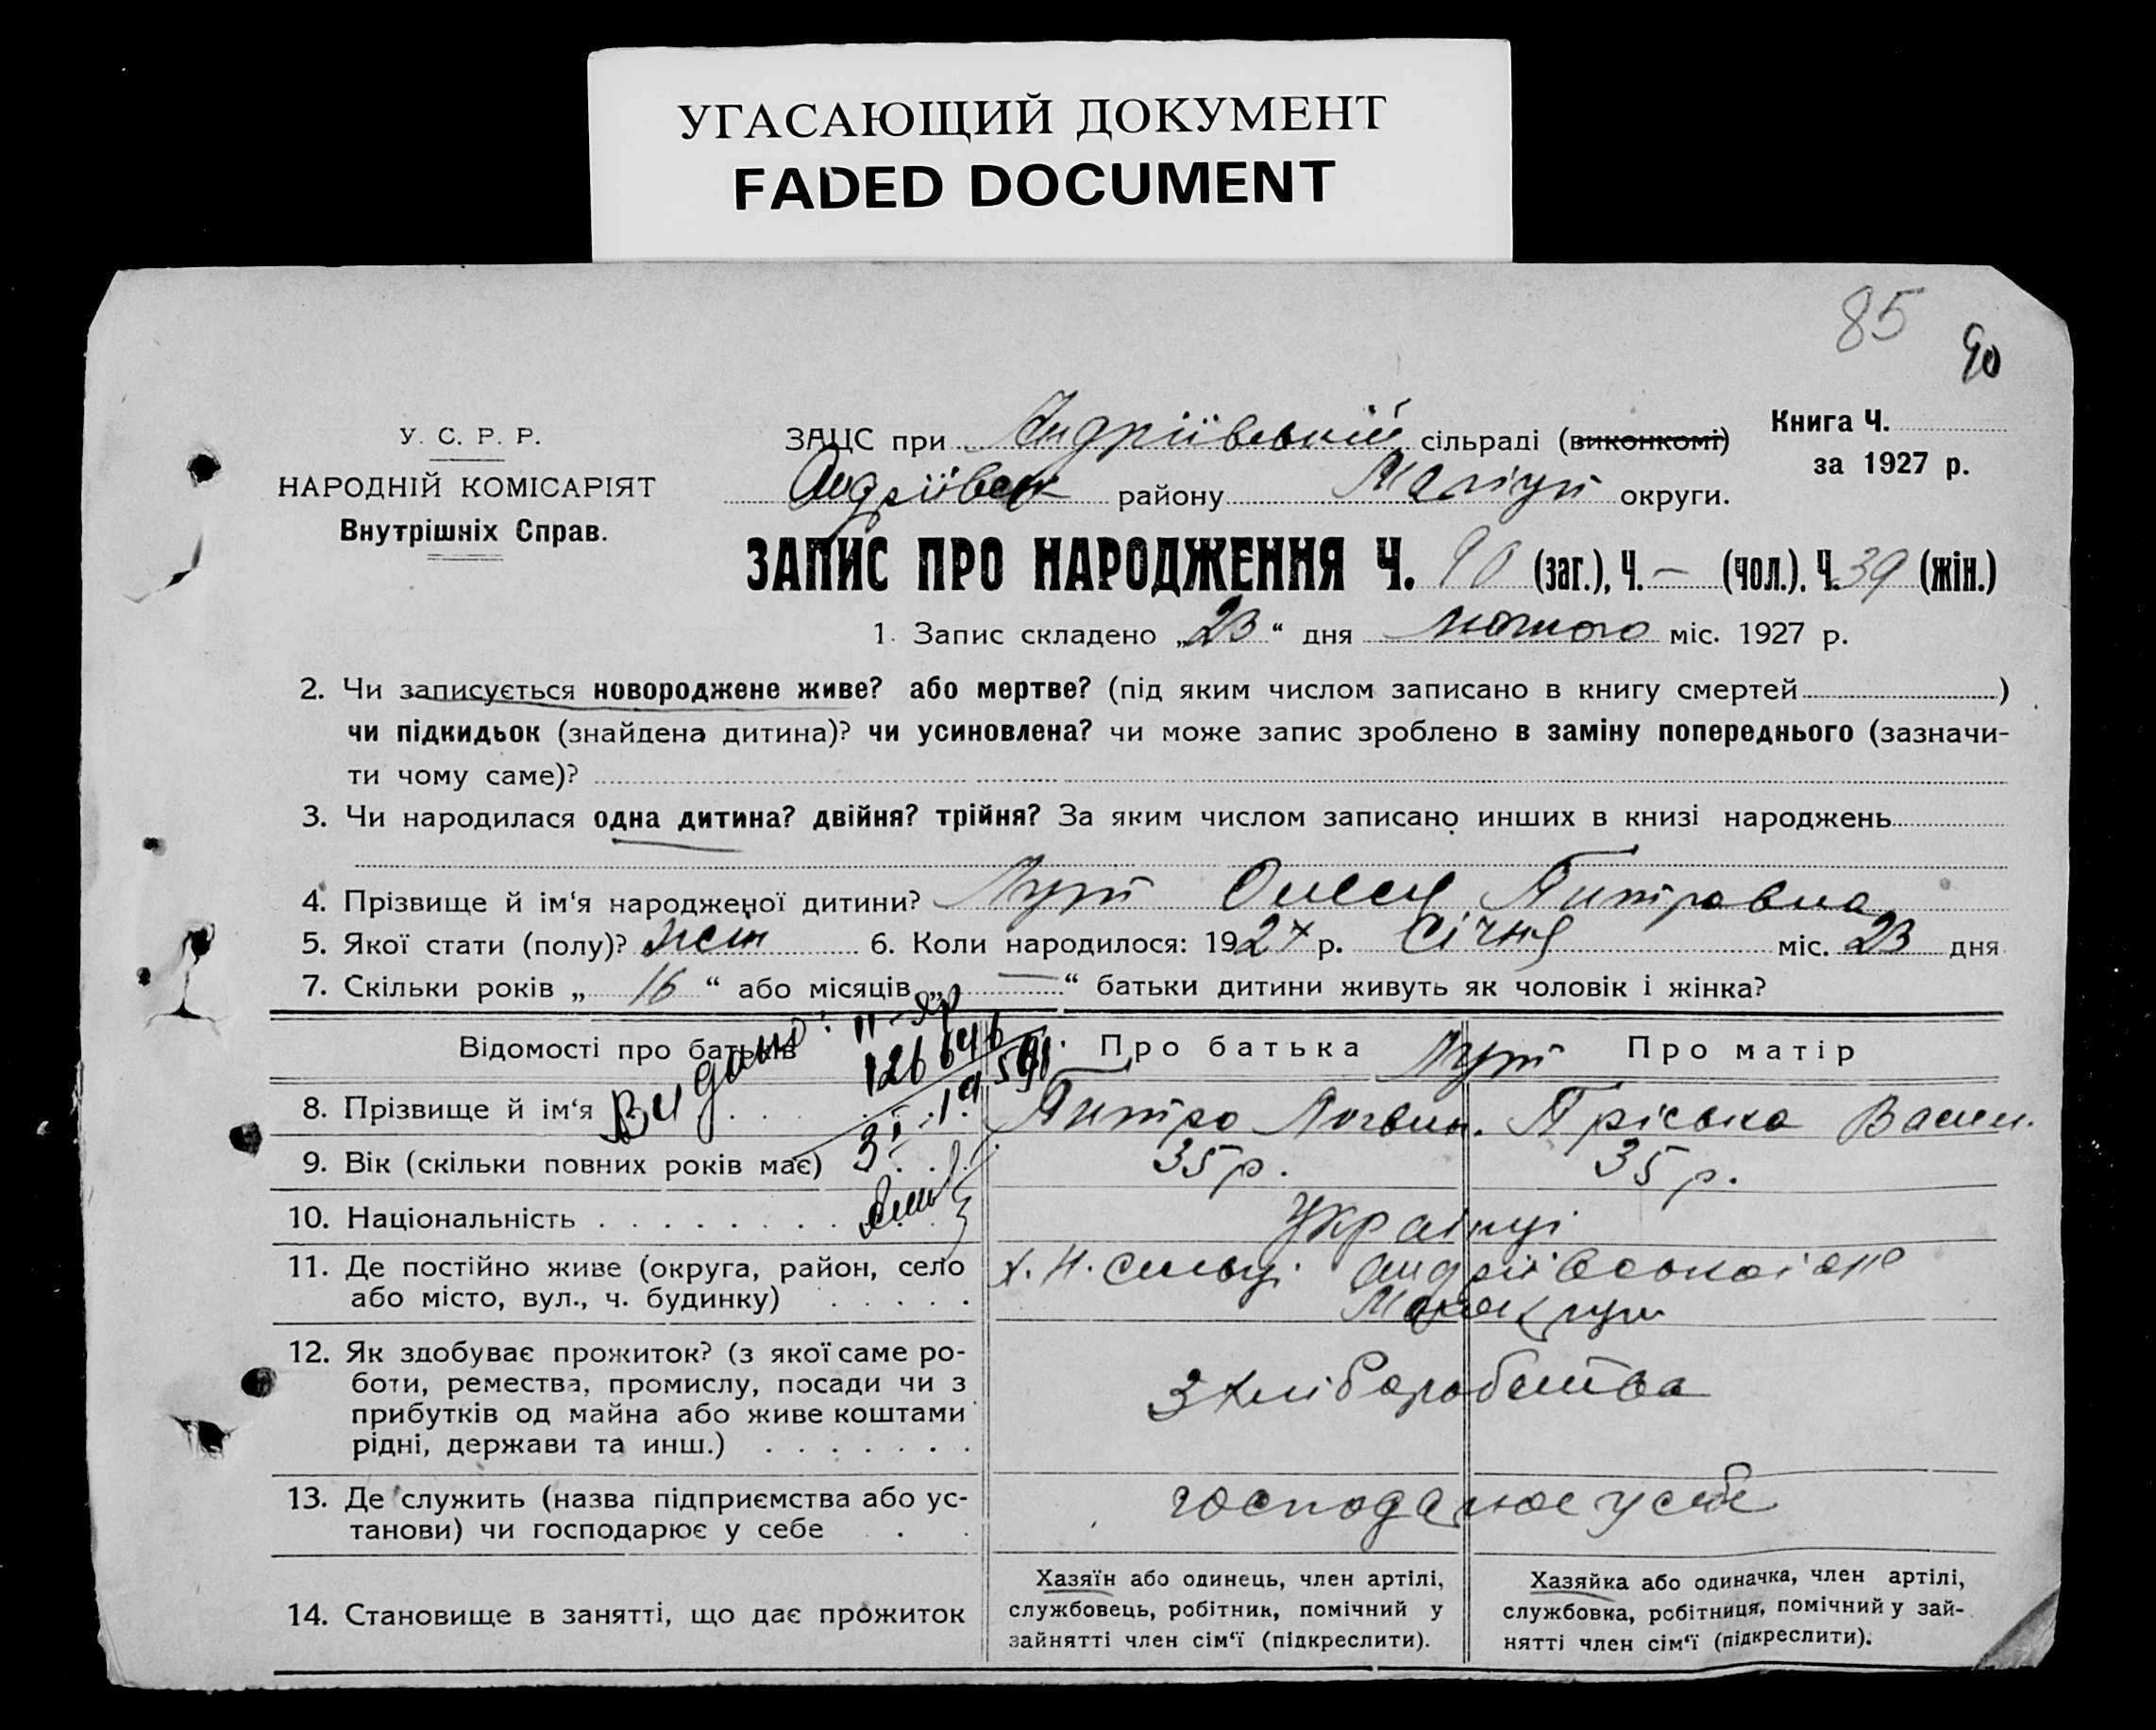 УГАСАЮЩИЙ ДОКУМЕНТ
FADED DOCUMENT
85
90
У. С. Р. Р.
НАРОДНІЙ КОМІСАРІЯТ
Внутрішніх Справ.
ЗАЦС при Андріївській сільраді (виконкомі)
Книга Ч.
за 1927 р.
Андріївськ району Маріуп округи.
ЗАПИС ПРО НАРОДЖЕННЯ Ч. 90 (заг.), Ч. — (чол.), Ч. 39 (жін.)
1. Запис складено „23“ дня лютого міс. 1927 р.
2. Чи записується новороджене живе? або мертве? (під яким числом записано в книгу смертей)
чи підкидьок (знайдена дитина)? чи усиновлена? чи може запис зроблено в заміну попереднього (зазначи-
ти чому саме)?
3. Чи народилася одна дитина? двійня? трійня? За яким числом записано инших в книзі народжень
4. Прізвище й ім‘я народженої дитини? Лут Олеся Питровна
5. Якої стати (полу)? жін 6. Коли народилося: 1927 р. Січня міс. 23 дня
7. Скільки років „ 16 “ або місяців „ — “ батьки дитини живуть як чоловік і жінка?
Відомості про батьків
Про батька Лут Про матір
Видано: II-яр
126646
8. Прізвище й ім‘я Питро Логвин. Пріська Васил.
9. Вік (скільки повних років має) 35 р. 35 р.
10. Національність Українці
11. Де постійно живе (округа, район, село
або місто, вул., ч. будинку)
Х. Н. Андріївської
12. Як здобуває прожиток? (з якої саме ро-
боти, ремества, промислу, посади чи з
прибутків од майна або живе коштами
рідні, держави та инш.)
З хліборобства
13. Де служить (назва підприємства або ус-
танови) чи господарює у себе
господарює у себе
14. Становище в занятті, що дає прожиток
Хазяїн або одинець, член артілі,
службовець, робітник, помічний у
зайнятті член сім‘ї (підкреслити).
Хазяйка або одиначка, член артілі,
службовка, робітниця, помічний у зай-
нятті член сім‘ї (підкреслити).